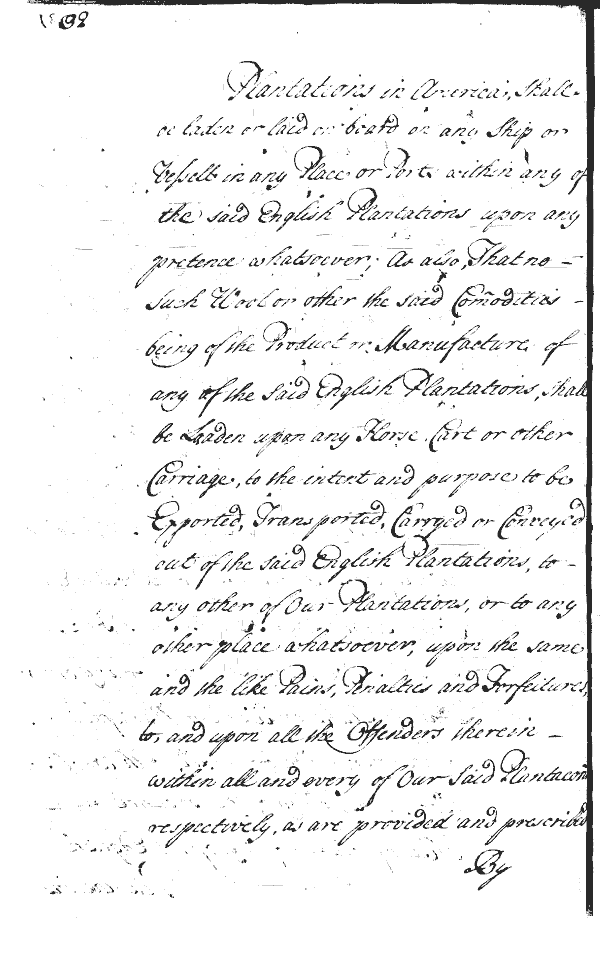 Plantations in America, shall
be laden or laid on board on any Ship or
Vessell in any Place or Port within any of
the said English Plantations upon any
pretence whatsoever; As also, That no –
such Wool or other the said Com̃odities –
being of the Product or Manufacture of
any of the said English Plantations, shall
be Laden upon any Horse, Cart or other
Carriage, to the intent and purpose to be
Exported, Transported, Carryed or Conveyed
out of the said English Plantations, to –
any other of Our Plantations, or to any
other place whatsoever, upon the same
and the like Pains, Penalties and Forfeitures,
to, and upon all the Offenders therein –
within all and every of Our said Plantacons
respectively, as are provided and prescribed
By